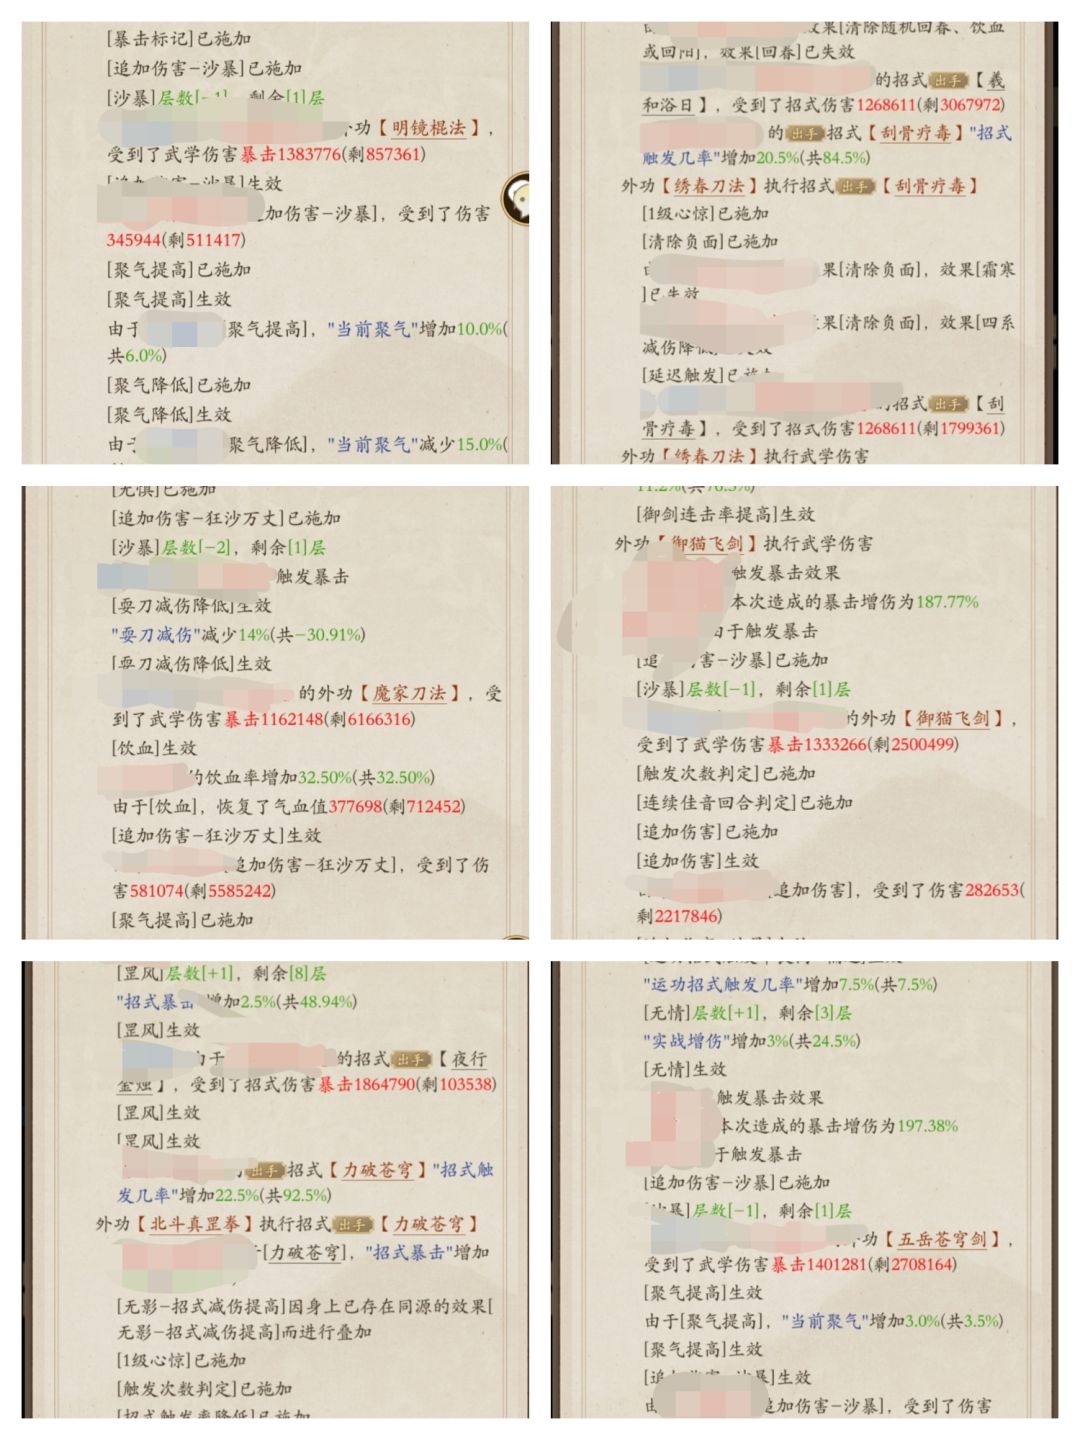 [暴击标记]已施加
[追加伤害-沙暴]已施加
[沙暴]层数[-1]，剩余[1]层
外功【明镜棍法】，
受到了武学伤害暴击1383776(剩857361)
害-沙暴]生效
加伤害-沙暴]，受到了伤害
345944(剩511417)
[聚气提高]已施加
[聚气提高]生效
由于 聚气提高]，"当前聚气"增加10.0%(
共6.0%)
[聚气降低]已施加
[聚气降低]生效
由于 聚气降低]，"当前聚气"减少15.0%(
效果[清除随机回春、饮血
或回阳]，效果[回春]已失效
的招式出手【羲
和浴日】，受到了招式伤害1268611(剩3067972)
的出手招式【刮骨疗毒】"招式
触发几率"增加20.5%(共84.5%)
外功【绣春刀法】执行招式出手【刮骨疗毒】
[1级心惊]已施加
[清除负面]已施加
果[清除负面]，效果[霜寒
]已失效
果[清除负面]，效果[四系
减伤降
[延迟触发]已施加
招式出手【刮
骨疗毒】，受到了招式伤害1268611(剩1799361)
外功【绣春刀法】执行武学伤害
[无惧]已施加
[追加伤害-狂沙万丈]已施加
[沙暴]层数[-2]，剩余[1]层
触发暴击
[耍刀减伤降低]生效
"耍刀减伤"减少14%(共-30.91%)
[耍刀减伤降低]生效
的外功【魔家刀法】，受
到了武学伤害暴击1162148(剩6166316)
[饮血]生效
的饮血率增加32.50%(共32.50%)
由于[饮血]，恢复了气血值377698(剩712452)
[追加伤害-狂沙万丈]生效
追加伤害-狂沙万丈]，受到了伤
害581074(剩5585242)
[聚气提高]已施加
[御剑连击率提高]生效
外功【御猫飞剑】执行武学伤害
触发暴击效果
本次造成的暴击增伤为187.77%
由于触发暴击
[追 害-沙暴]已施加
[沙暴]层数[-1]，剩余[1]层
的外功【御猫飞剑】，
受到了武学伤害暴击1333266(剩2500499)
[触发次数判定]已施加
[连续佳音回合判定]已施加
[追加伤害]已施加
[追加伤害]生效
追加伤害]，受到了伤害282653(
剩2217846)
[罡风]层数[+1]，剩余[8]层
"招式暴击 增加2.5%(共48.94%)
[罡风]生效
由于 的招式出手【夜行
金烛】，受到了招式伤害暴击1864790(剩103538)
[罡风]生效
[罡风]生效
出手招式【力破苍穹】"招式触
发几率"增加22.5%(共92.5%)
外功【北斗真罡拳】执行招式出手【力破苍穹】
[力破苍穹]，"招式暴击"增加
[无影-招式减伤提高]因身上已存在同源的效果[
无影-招式减伤提高]而进行叠加
[1级心惊]已施加
[触发次数判定]已施加
[招式触发率降低]已施加
"运功招式触发几率"增加7.5%(共7.5%)
[无情]层数[+1]，剩余[3]层
"实战增伤"增加3%(共24.5%)
[无情]生效
触发暴击效果
本次造成的暴击增伤为197.38%
于触发暴击
[追加伤害-沙暴]已施加
暴]层数[-1]，剩余[1]层
外功【五岳苍穹剑】，
受到了武学伤害暴击1401281(剩2708164)
[聚气提高]生效
由于[聚气提高]，"当前聚气"增加3.0%(共3.5%)
[聚气提高]生效
[追 暴]生效
由 追加伤害-沙暴]，受到了伤害